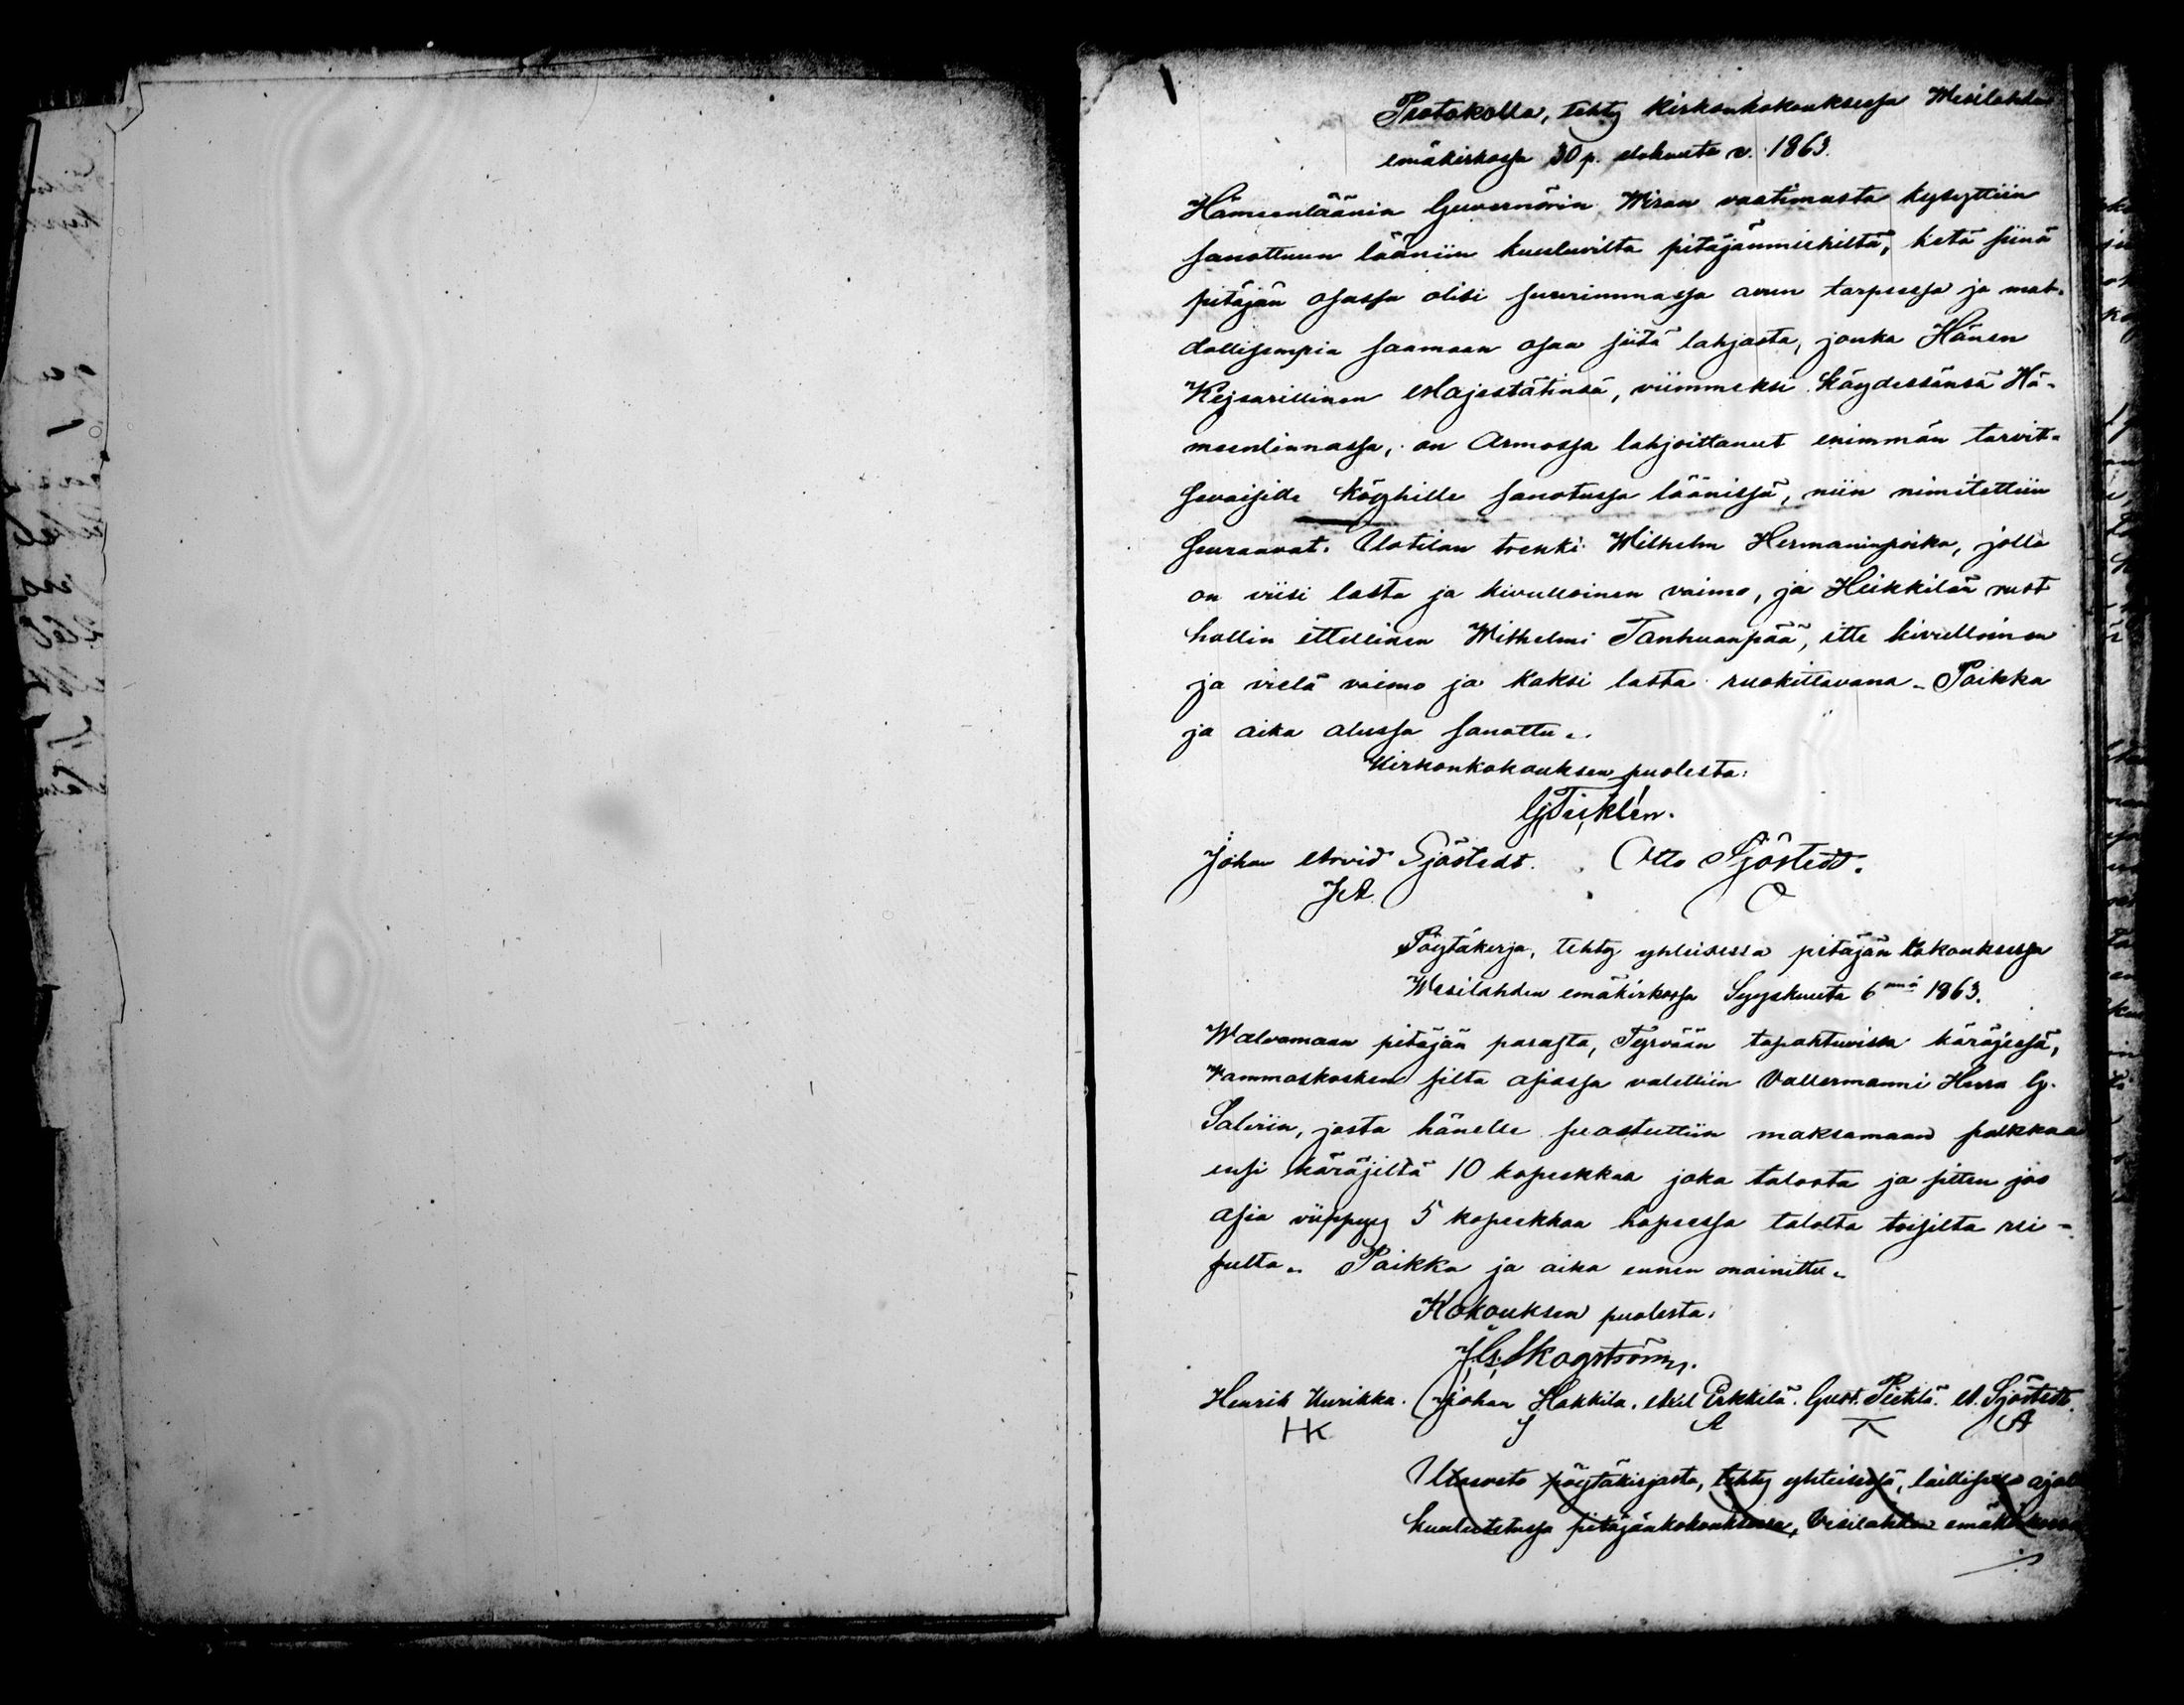 Protokolla, tehty kirkonkokouksessa Wesilahden
emäkirkossa 30 p. elokuuta v. 1863.
Hämeenläänin Guvernörin Wiran vaatimusta kysyttiin
sanottuun lääniin kuuluvilta pitäjänmiehiltä, ketä siinä
pitäjän osassa olisi suurimmassa avun tarpeessa ja mah-
dollisempia saamaan osaa siitä lahjasta, jonka Hänen
Kejsarillinen Majestätinsä, viimmeksi käydessänsä Hä-
meenlinnassa, on Armossa lahjoittanut enimmän tarvit-
sevaisille köyhille sanotussa läänissä, niin nimitettiin
seuraavat. Uotilan trenki Wilhelm Hermaninpoika, jolla
on viisi lasta ja kivulloinen vaimo, ja Heikkilän rust
hollin itellinen Wilhelmi Tanhuanpää, itte kivulloinen
ja vielä vaimo ja kaksi lasta ruokittavana. Paikka
ja aika alussa sanottu.
Kirkonkokouksen puolesta:
G Ticklén.
Johan Arvid Sjöstedt. Otto Sjöstedt.
JA O
Pöytäkerja, tehty yhteisessä pitäjän kokouksessa
Wesilahden emäkirkossa Syyskuuta 6 nnä 1863.
Walvomaan pitäjän parasta, Tyrvään tapahtuvissa käräjissä,
Wammaskosken silta asiassa valittiin Vallesmanni Herra G.
Salerin, josta hänelle suostuttiin maksamaan palkkaa
ensi käräjiltä 10 kopeekkaa joka talosta ja sitten jos
asia viippyy 5 kopeekkaa hopeessa talolta toisilta rei-
sulta. Paikka ja aika ennen mainittu.
Kokouksen puolesta:
J. G. Skogström.
Henrik Kurikka. Johan Hakkila. Akel Erkkilä. Gust. Pietilä. A. Sjöstedt.
HK J A A
Ulosveto pöytäkirjasta, tehty yhteisessä, laillisesa ajalla
kuulutetussa pitäjänkokouksessa, Vesilahden emäkirkossa